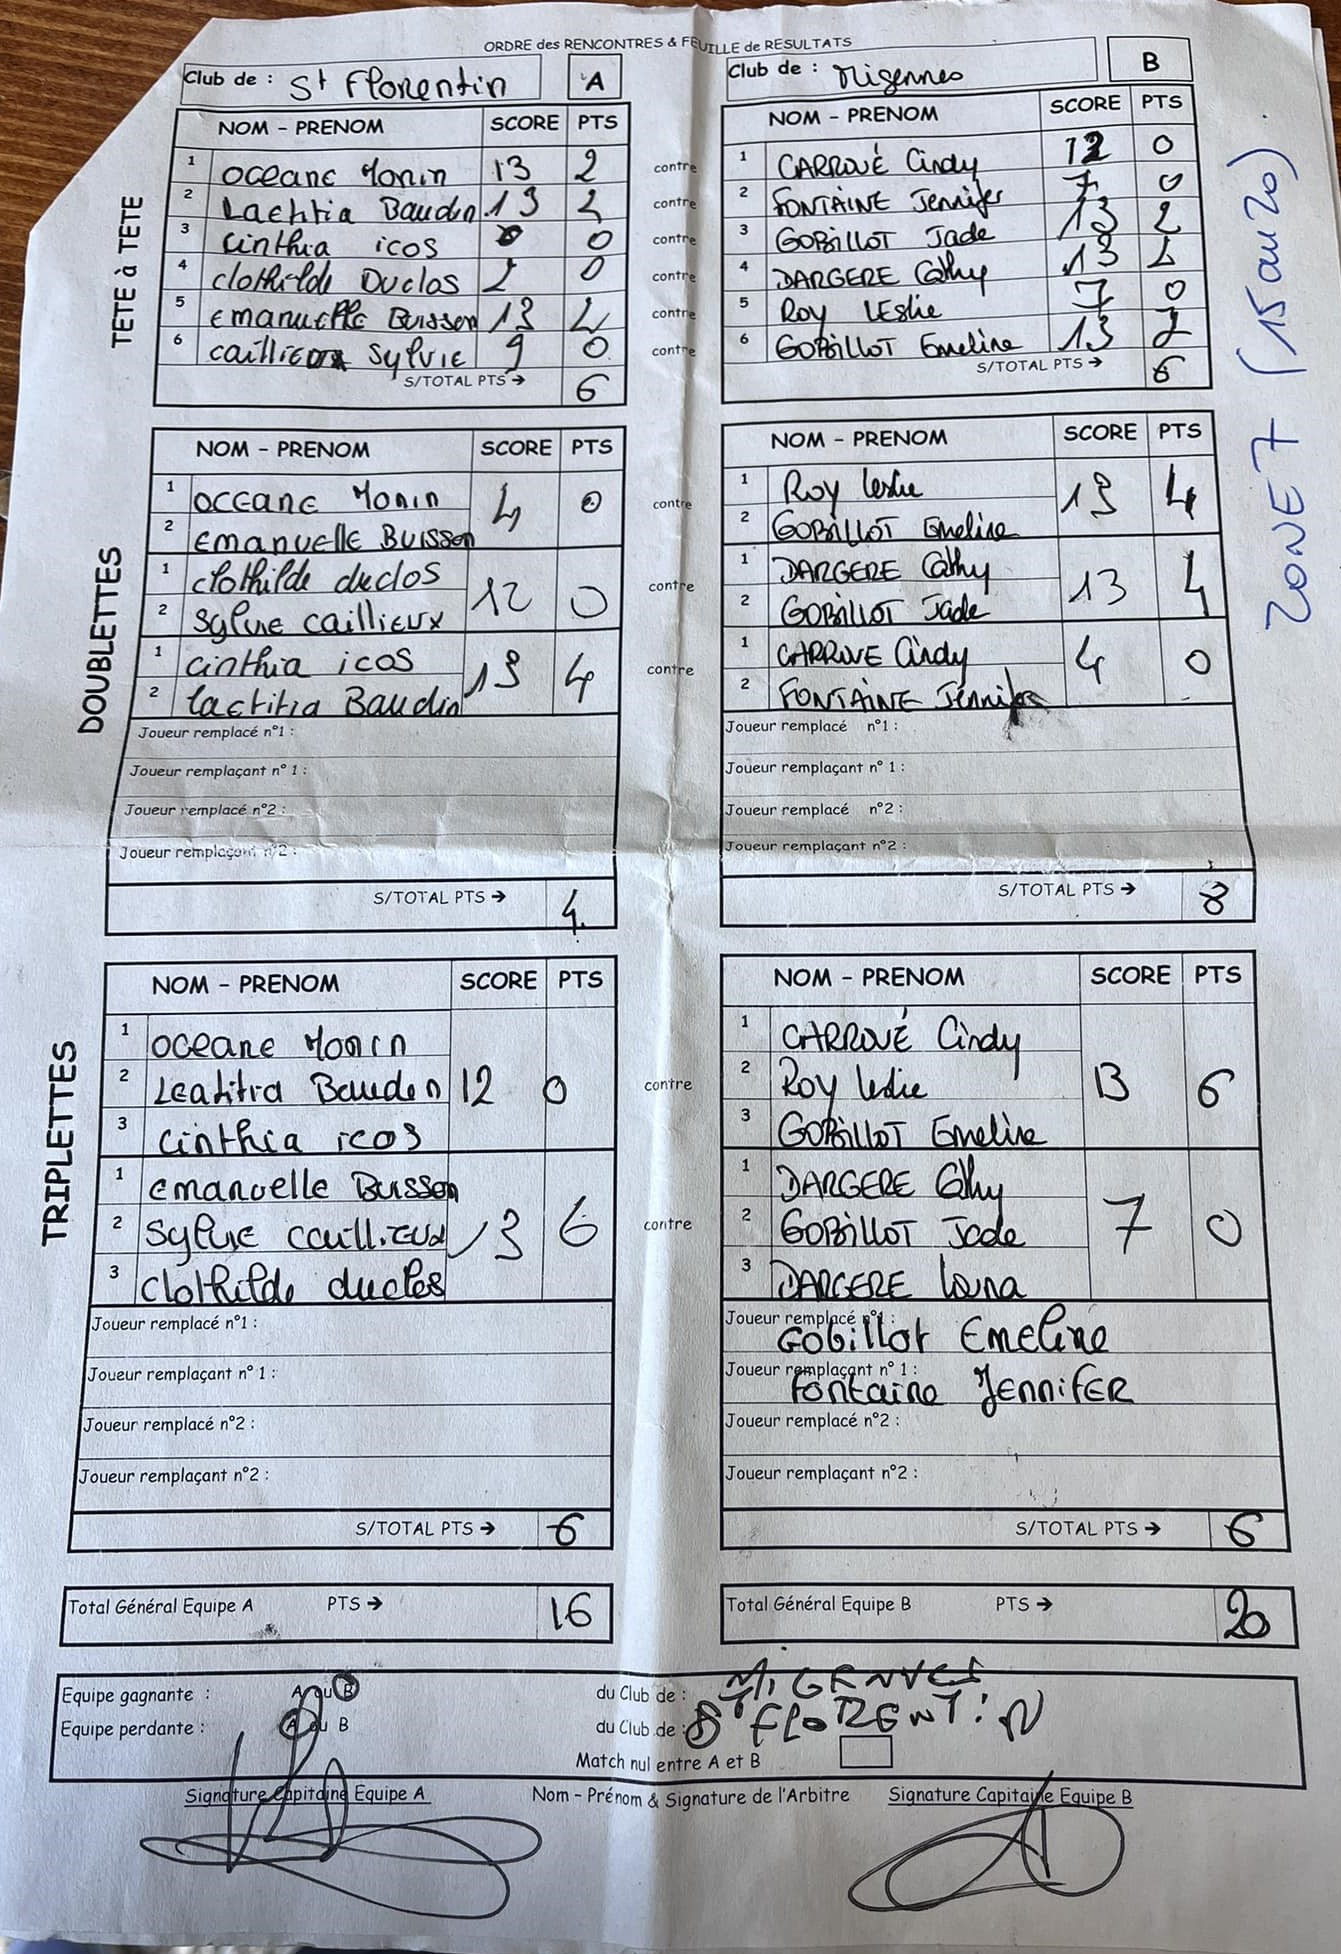 ORDRE des RENCONTRES & FEUILLE de RESULTATS
Club de : St Florentin A
NOM - PRENOM SCORE PTS
TETE à TETE
1 oceane Monin 13 2
2 Laetitia Baudin 13 2
3 cinthia icos 0 0
4 clothilde Duclos 2 0
5 emanuelle Buisson 13 2
6 caillieux Sylvie 9 0
S/TOTAL PTS → 6
contre
contre
contre
contre
contre
contre
Club de : Migennes B
NOM - PRENOM SCORE PTS
1 CARROUÉ Cindy 12 0
2 FONTAINE Jennifer 7 0
3 GOBILLOT Jade 13 2
4 DARGERE Cathy 13 2
5 Roy LEslie 7 0
6 GOBILLOT Emeline 13 2
S/TOTAL PTS → 6
ZONE 7 (15 au 20)
DOUBLETTES
NOM - PRENOM SCORE PTS
1 oceane Monin 4 0
2 emanuelle Buisson
1 clothilde duclos 12 0
2 Sylvie caillieux
1 cinthia icos 13 4
2 laetitia Baudin
Joueur remplacé n°1 :
Joueur remplaçant n° 1 :
Joueur remplacé n°2 :
Joueur remplaçant n°2 :
S/TOTAL PTS → 4
contre
contre
contre
NOM - PRENOM SCORE PTS
1 Roy leslie 13 4
2 GOBILLOT Emeline
1 DARGERE Cathy 13 4
2 GOBILLOT Jade
1 CARROUE Cindy 4 0
2 FONTAINE Jennifer
Joueur remplacé n°1 :
Joueur remplaçant n° 1 :
Joueur remplacé n°2 :
Joueur remplaçant n°2 :
S/TOTAL PTS → 8
TRIPLETTES
NOM - PRENOM SCORE PTS
1 oceane Monin
2 Leatitia Bauden 12 0
3 cinthia icos
1 emanuelle Buisson
2 Sylvie caillieux 13 6
3 Clothilde duclos
Joueur remplacé n°1 :
Joueur remplaçant n° 1 :
Joueur remplacé n°2 :
Joueur remplaçant n°2 :
S/TOTAL PTS → 6
contre
contre
NOM - PRENOM SCORE PTS
1 CARROUÉ Cindy
2 Roy leslie 13 6
3 GOBILLOT Emeline
1 DARGERE Cathy
2 GOBILLOT Jade 7 0
3 DARGERE Louna
Joueur remplacé n°1 : Gobillot Emeline
Joueur remplaçant n° 1 : Fontaine JENNIFER
Joueur remplacé n°2 :
Joueur remplaçant n°2 :
S/TOTAL PTS → 6
Total Général Equipe A PTS → 16
Total Général Equipe B PTS → 20
Equipe gagnante : A ou B du Club de : MIGENNES
Equipe perdante : A ou B du Club de : St FLORENTIN
Match nul entre A et B
Signature Capitaine Equipe A Nom - Prénom & Signature de l'Arbitre Signature Capitaine Equipe B